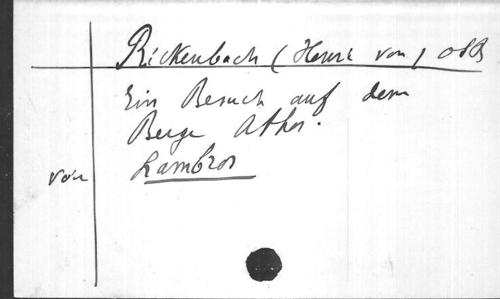 Rickenbach (Henri von) OSB
Ein Besuch auf dem
Berge Athos.
von Lambros